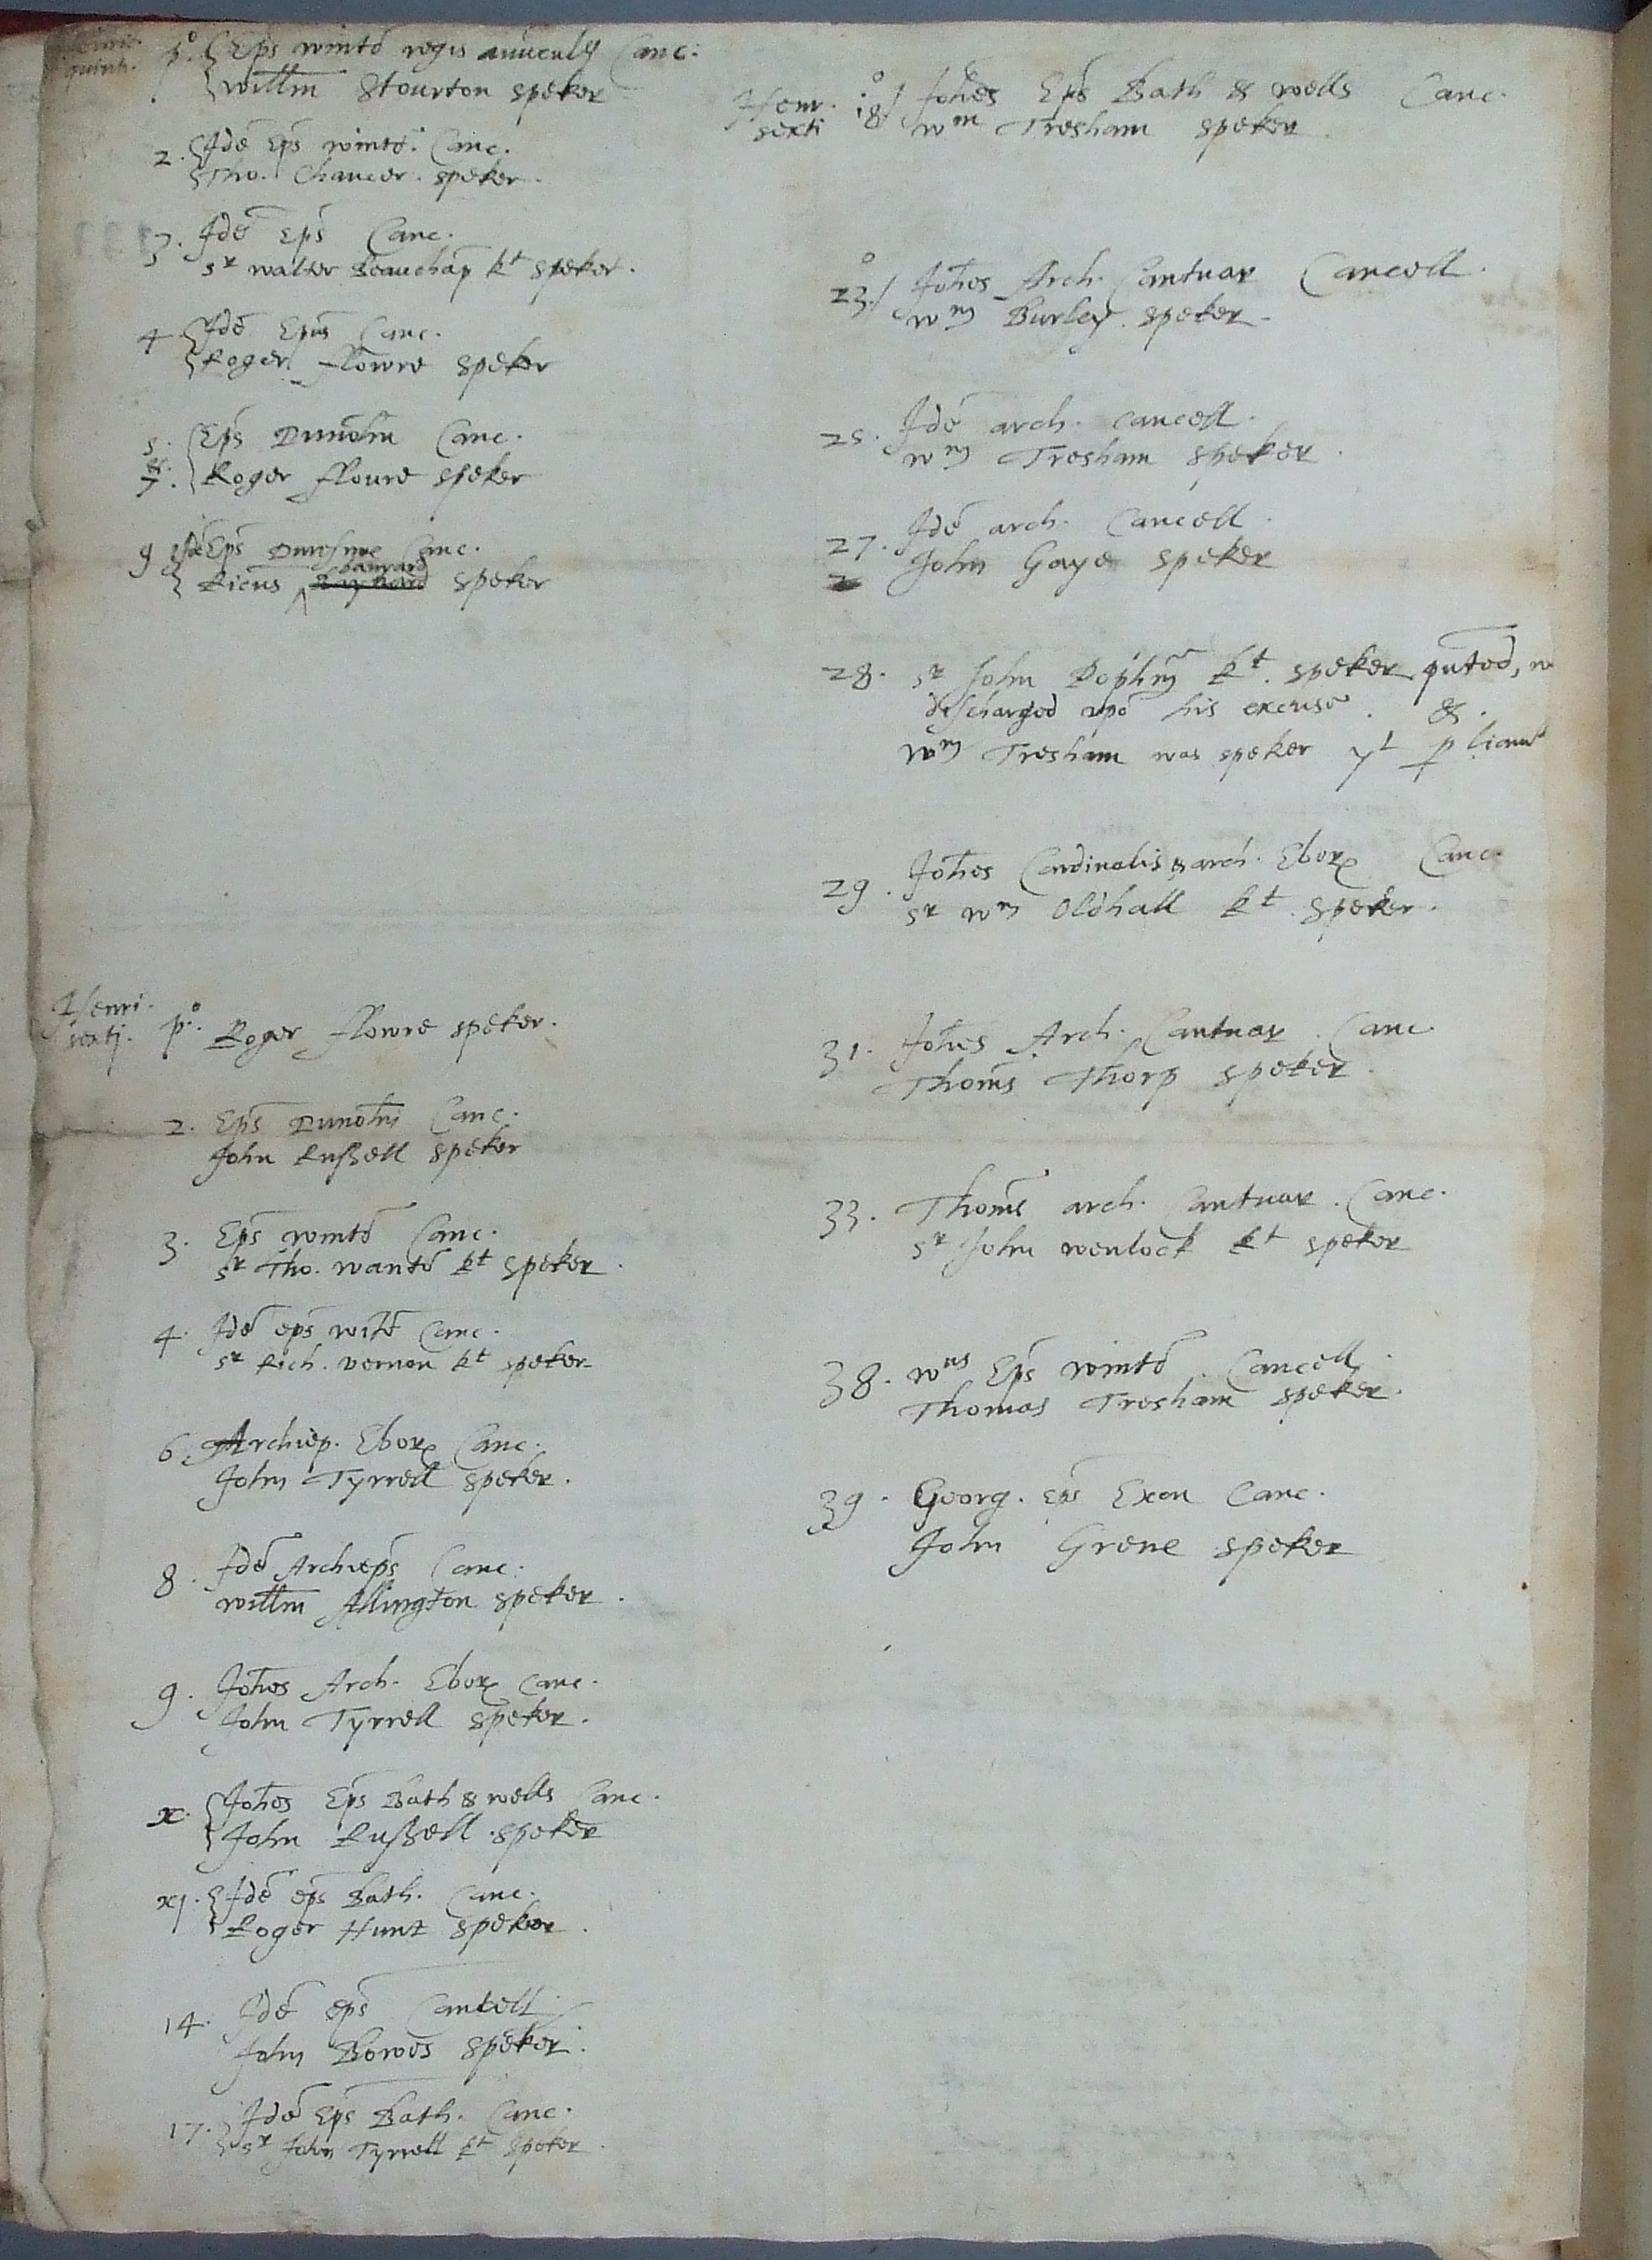 Henric. quinti. p.º Eps wintō regis auuenculꝯ Canc:
Willm̄ Stourton speker
2. Idē Eps wintō. Canc.
Tho. Chaucer. speker.
3. Idē Eps Canc.
Sr walter Beauchāp kt speker.
4 Idē Epūs Canc.
Roger fflowre speker
5. & 7. Eps Dunolm̄ Canc.
Roger floure speker
9 Idē Eps Dunelme Canc.
Ricus banyard speker
Henri. sexti. p.º Roger flowre speker.
2. Eps Dunolm̄ Canc.
John Russell speker
3. Eps wintō Canc.
Sr Tho. wantō kt speker.
4. Idē eps witō Canc.
Sr Rich. vernon kt speker
6. Archiep. Ebor Canc.
John Tyrrell speker.
8. Idē Archieps Canc.
Willm̄ Allington speker.
9. Johēs Arch. Ebor Canc.
John Tyrrell speker.
x. Johēs Eps Bath & wells Canc.
John Russell speker
xj. Idē eps Bath. Canc.
Roger Hunt speker.
14. Idē eps Cancell.
John Bowes speker.
17. Idē Eps Bath. Canc.
Sr John Tyrrell kt speker.
Henr. sexti 18º/ Johēs Eps Bath & wells Canc.
Wm Tresham speker.
23º/ Johēs Arch. Cantuar Cancell.
Wm Burley. speker.
25. Idē arch. Cancell.
Wm Tresham speker.
27. Idē arch. Cancell.
John Gaye speker
28. Sr John Pophm̄ kt. speker pn̄ted,
discharged vpō his excuse. &.
Wm Tresham was speker yt pliamt
29. Johēs Cardinalis & arch. Ebor Canc.
Sr Wm Oldhall kt. speker.
31. Johēs Arch. Cantuar. Canc.
Thoms̄ Thorp speker.
33. Thoms̄ arch. Cantuar. Canc.
Sr John wenlock kt speker
38. Wms Eps wintō. Cancell.
Thomas Tresham speker.
39. Georg. eps Exon Canc.
John Grene speker